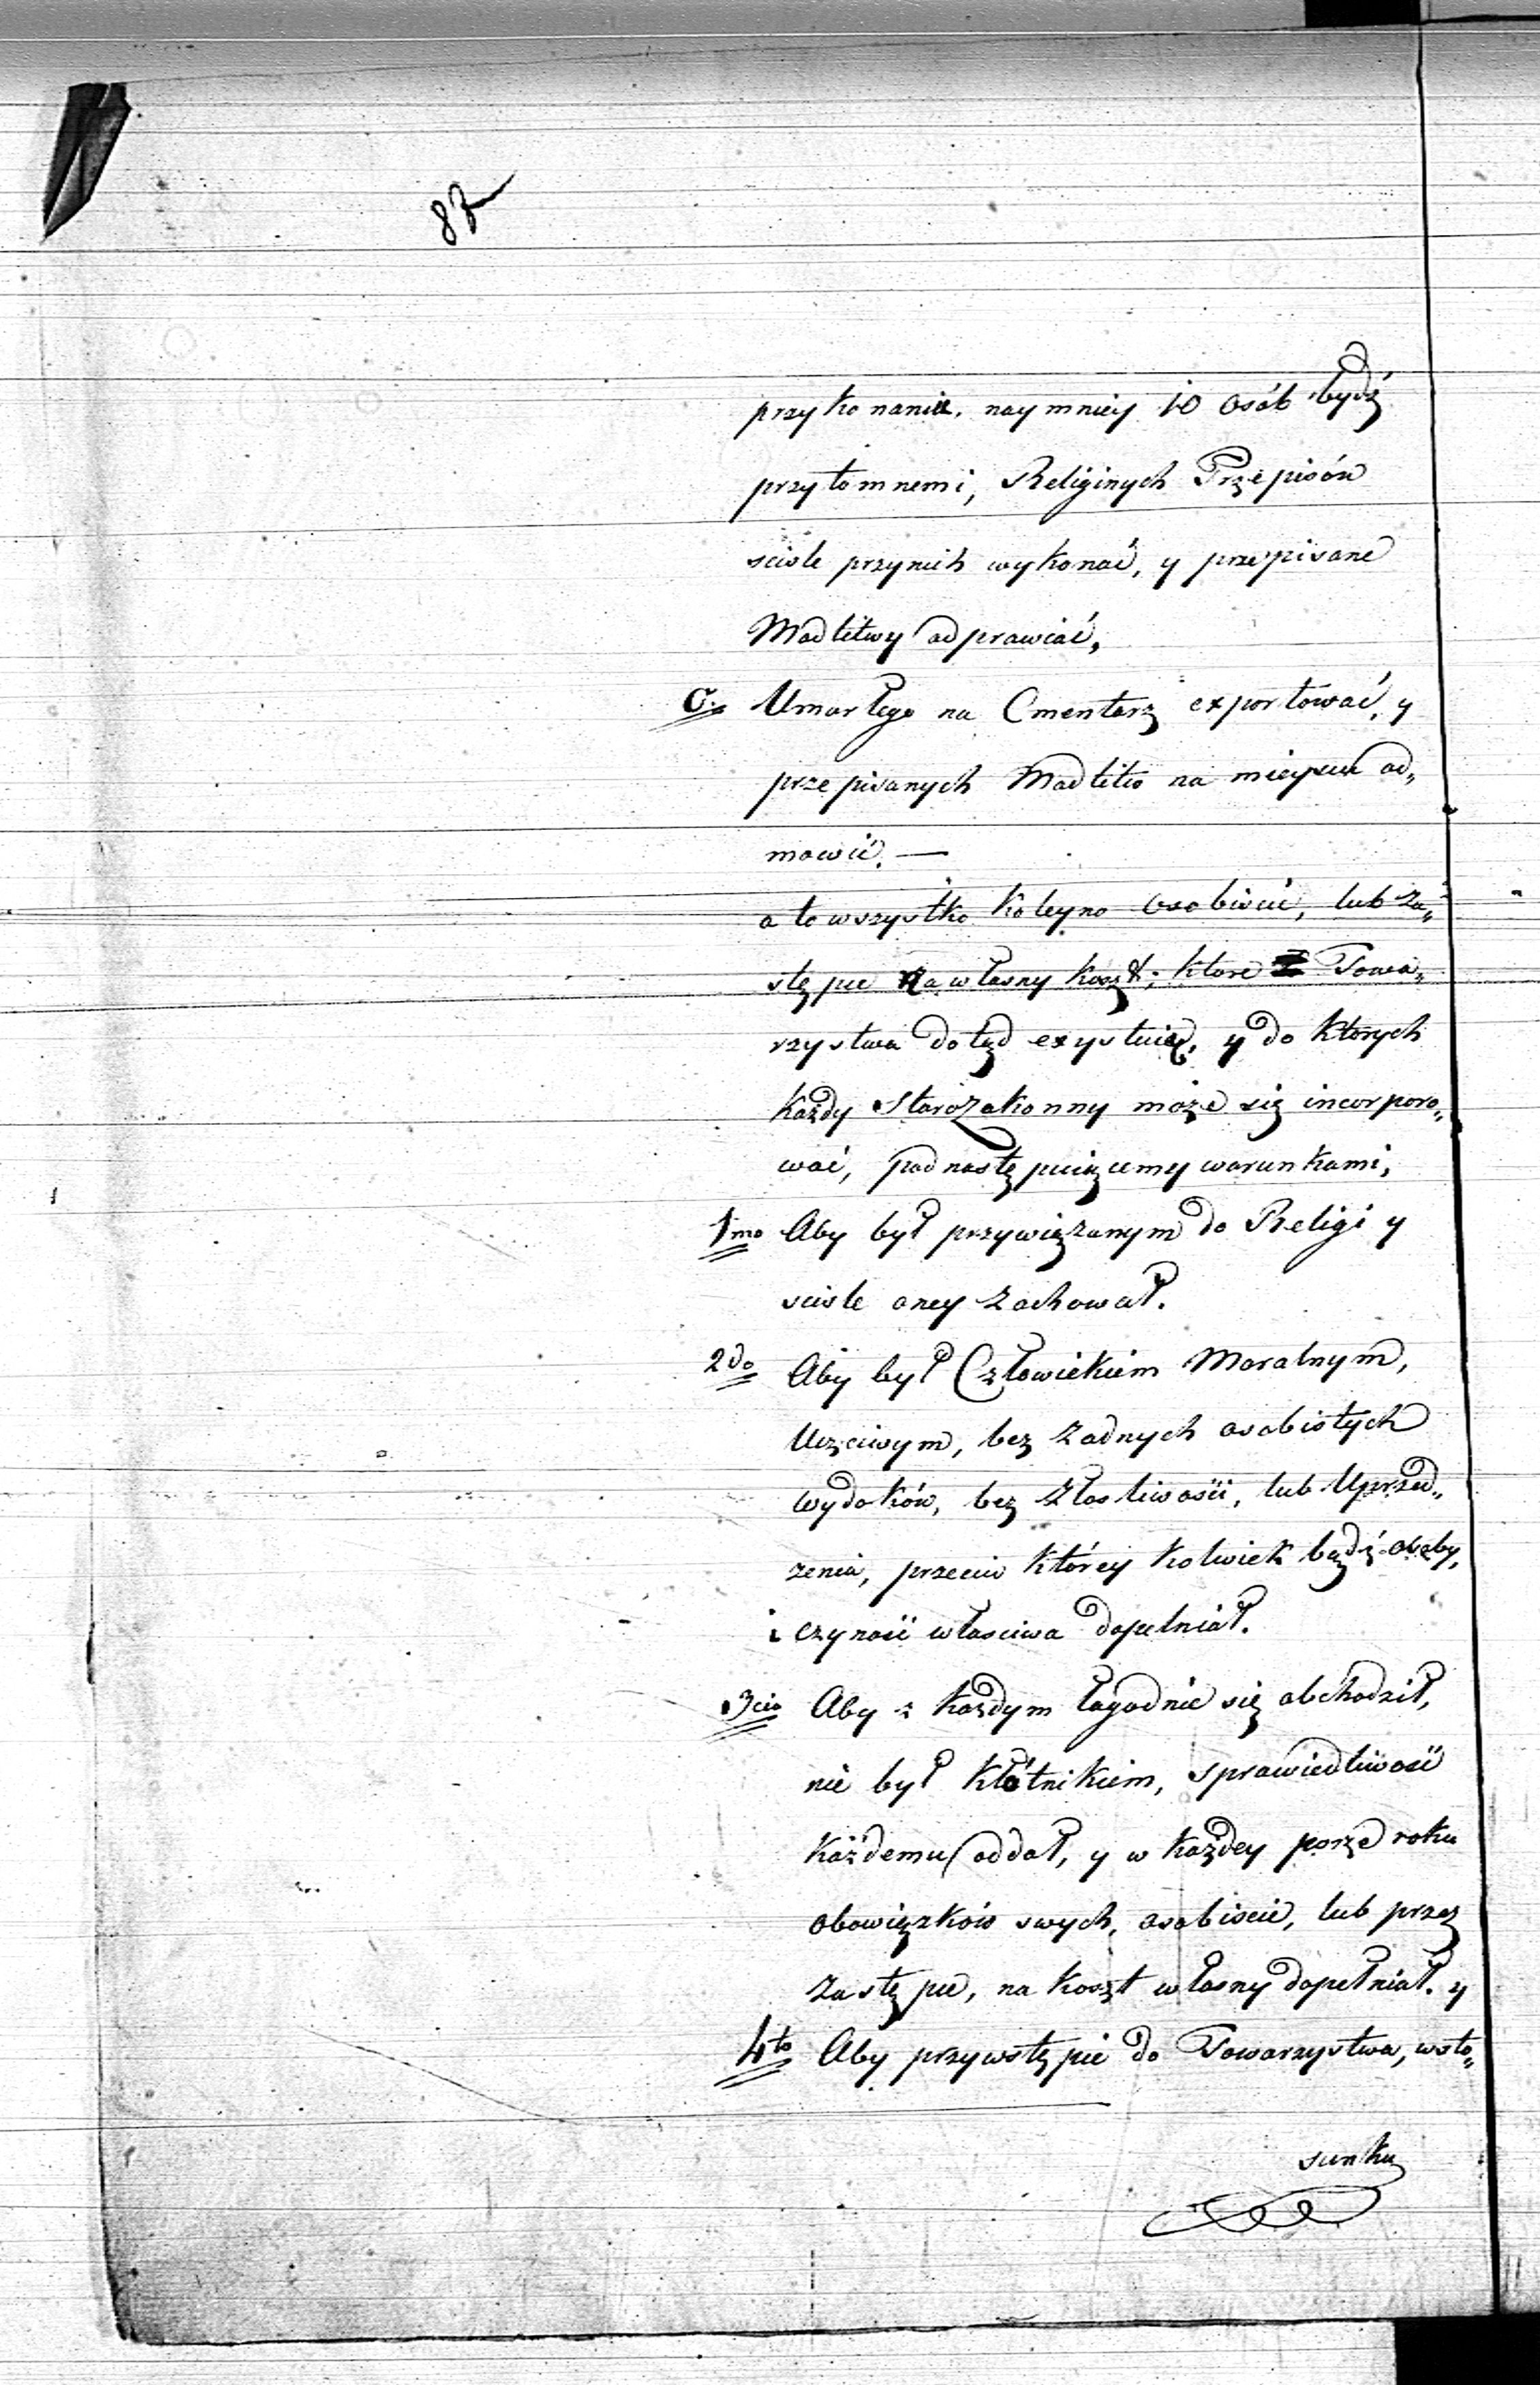 87
przy konaniu. naymniey 10 osób bydź
przytomnemi, Religinych Przepisów
scisle przynich wykonać, y przepisane
Modlitwy odprawiać,
C. Umarłego na Cmentarz exportować, y
przepisanych Modlitw na mieyscu od„
mowić. —
a to wszystko koleyno osobiście, lub za„
stępcę na własny koszt; ktore Towa„
rzystwa dotąd exystuią, y do ktorych
każdy Starozakonny może się incorporo„
wać, pod następuiącemy warunkami,
1mo Aby był przywiązanym do Religi y
scisle oney zachował.
2do Aby był Człowiekiem Moralnym,
Uczciwym, bez żadnych osobistych
wydoków, bez złosliwości, lub Uprzed„
zenia, przeciw którey kolwiek bądź osoby,
i czyność własciwa dopełniał.
3cio Aby z każdym łagodnie się obchodził,
nie był kłótnikiem, sprawiedliwość
każdemu oddał, y w każdey porze roku
obowiązków swych, osobiscie, lub przez
zastępce, na koszt własny dopełniał. y
4to Aby przywstępie do Towarzystwa, wsto„
sunku